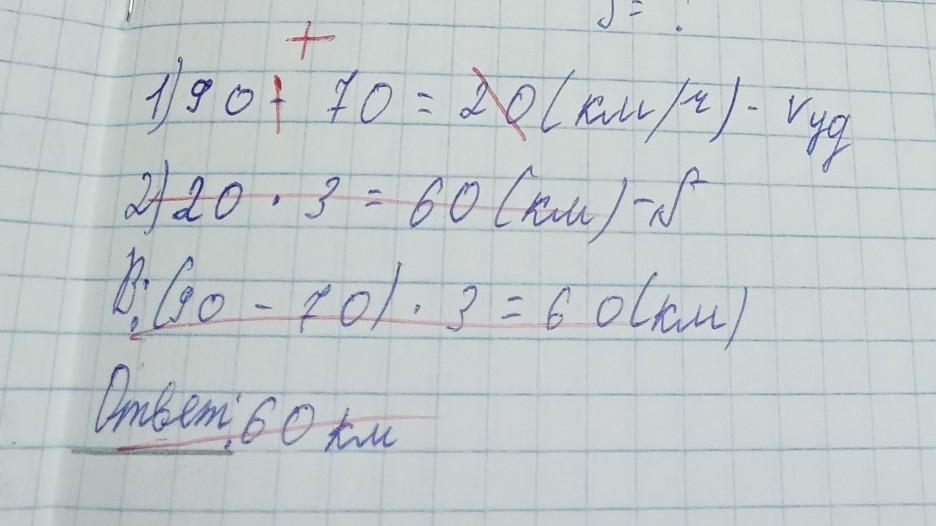 S = ?
+
1) 90 - 70 = 20 (км/ч) - vуд
2) 20 · 3 = 60 (км) - S
В: (90 - 70) · 3 = 60 (км)
Ответ: 60 км